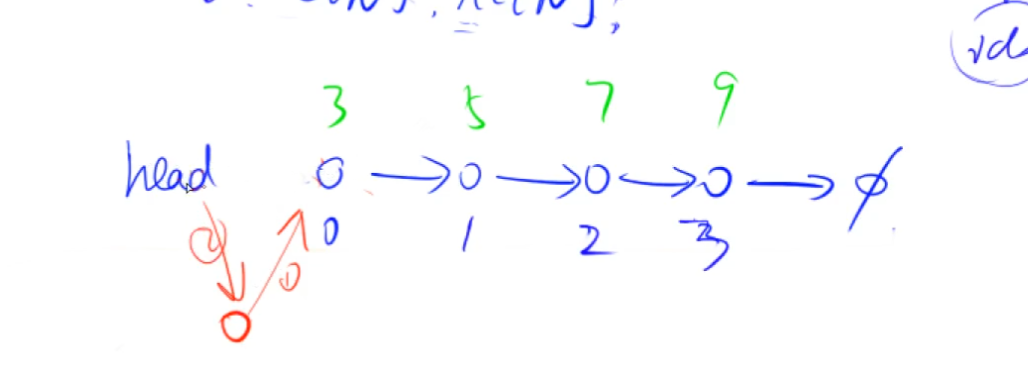 3 5 7 9
head O → O → O → O → ∅
0 1 2 3
② ①
O